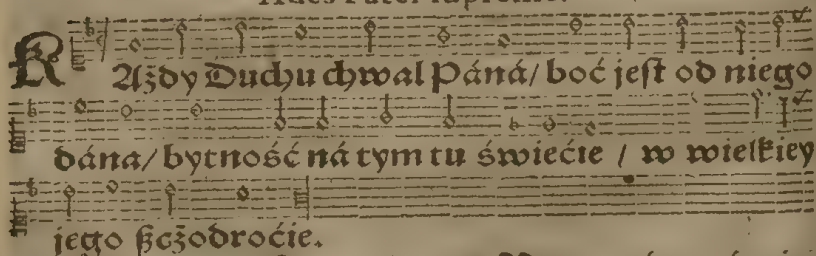 KAżdy Duchu chwal Páná/ boć jest od niego
dána/ bytność ná tym tu świećie / w wielkiey
jego szczodroćie.